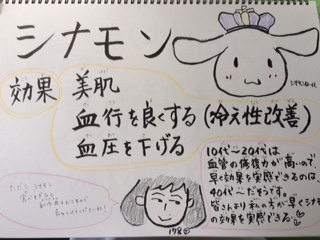 シナモン
効果 美肌
血行を良くする(冷え性改善)
血圧を下げる
10代〜20代は
血管の修復力が高いので、
早く効果を実感できるのは、
40代〜だそうです。
皆さんより私の方が早くシナモン
の効果を実感できる